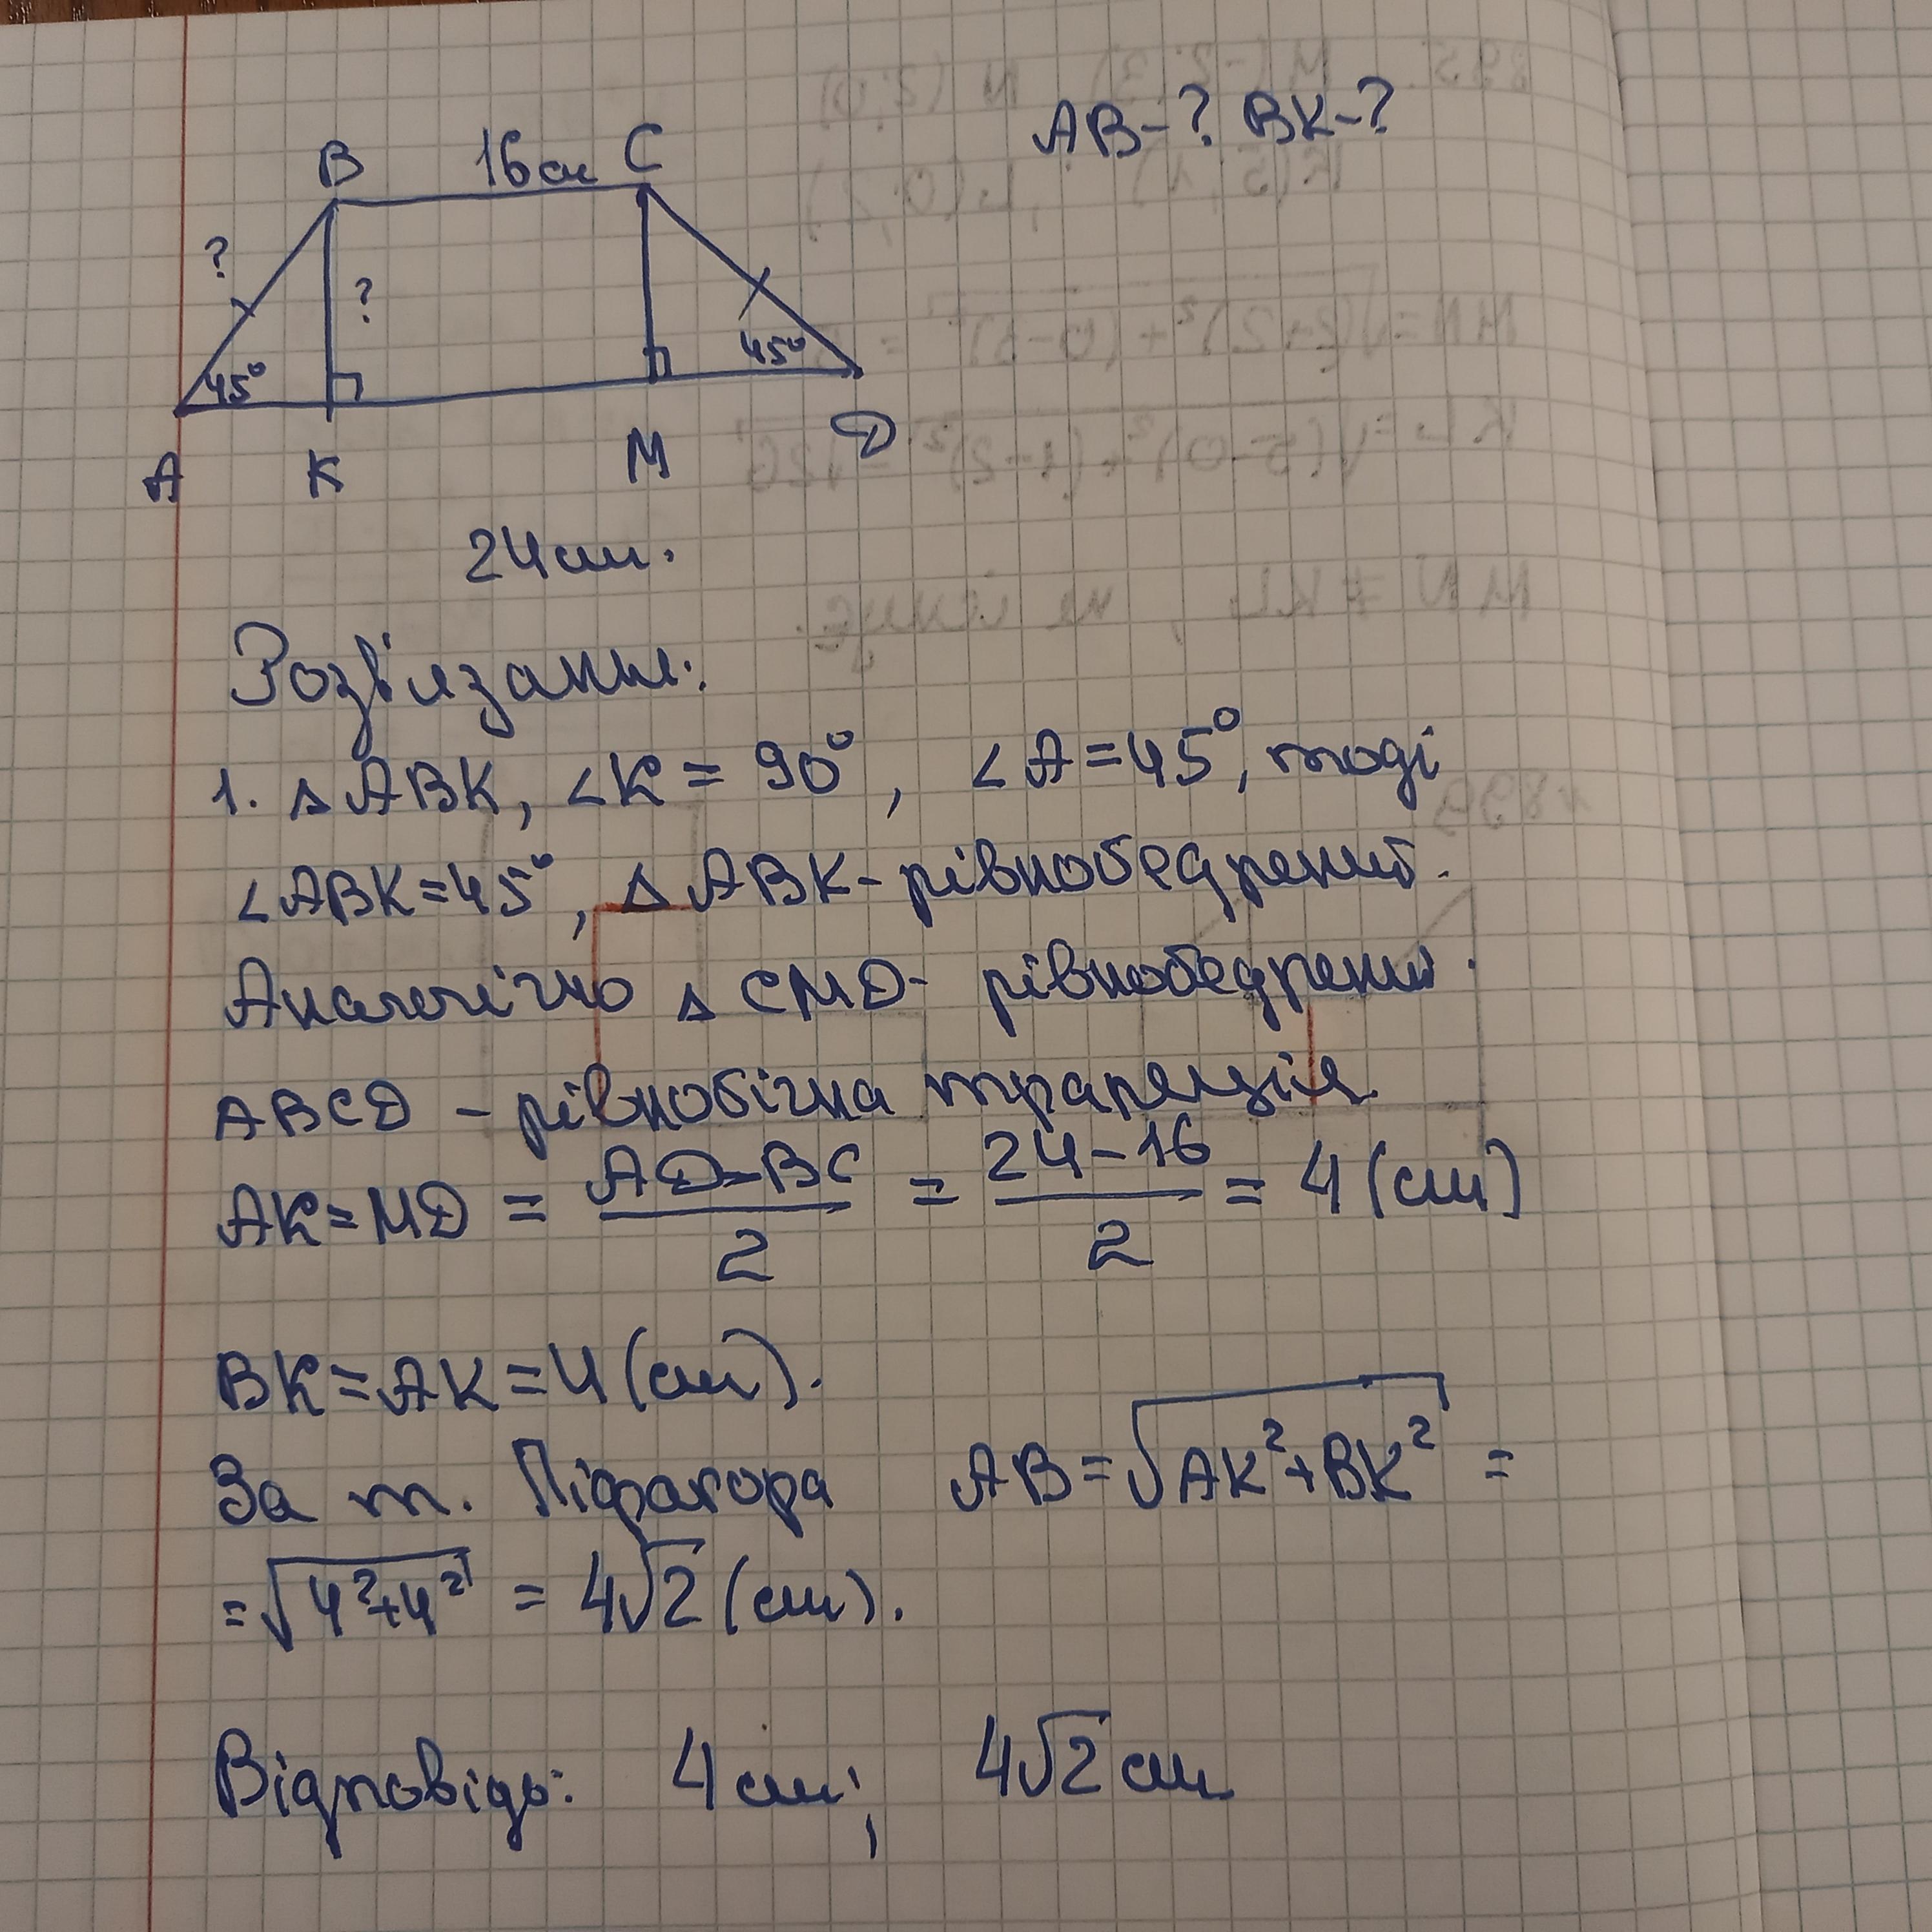 AB-? BK-?
B 16см C
?
?
45° 45°
A K M D
24см.
Розв'язання:
1. △ABK, ∠K = 90°, ∠A=45°, тоді
∠ABK=45°, △ABK-рівнобедрений.
Аналогічно △CMD- рівнобедрений.
ABCD - рівнобічна трапеція.
AK=MD = \frac{AD-BC}{2} = \frac{24-16}{2} = 4 (см)
BK=AK=4(см).
За т. Піфагора AB=√(AK²+BK²) =
=√(4²+4²) = 4√2 (см).
Відповідь: 4 см; 4√2 см